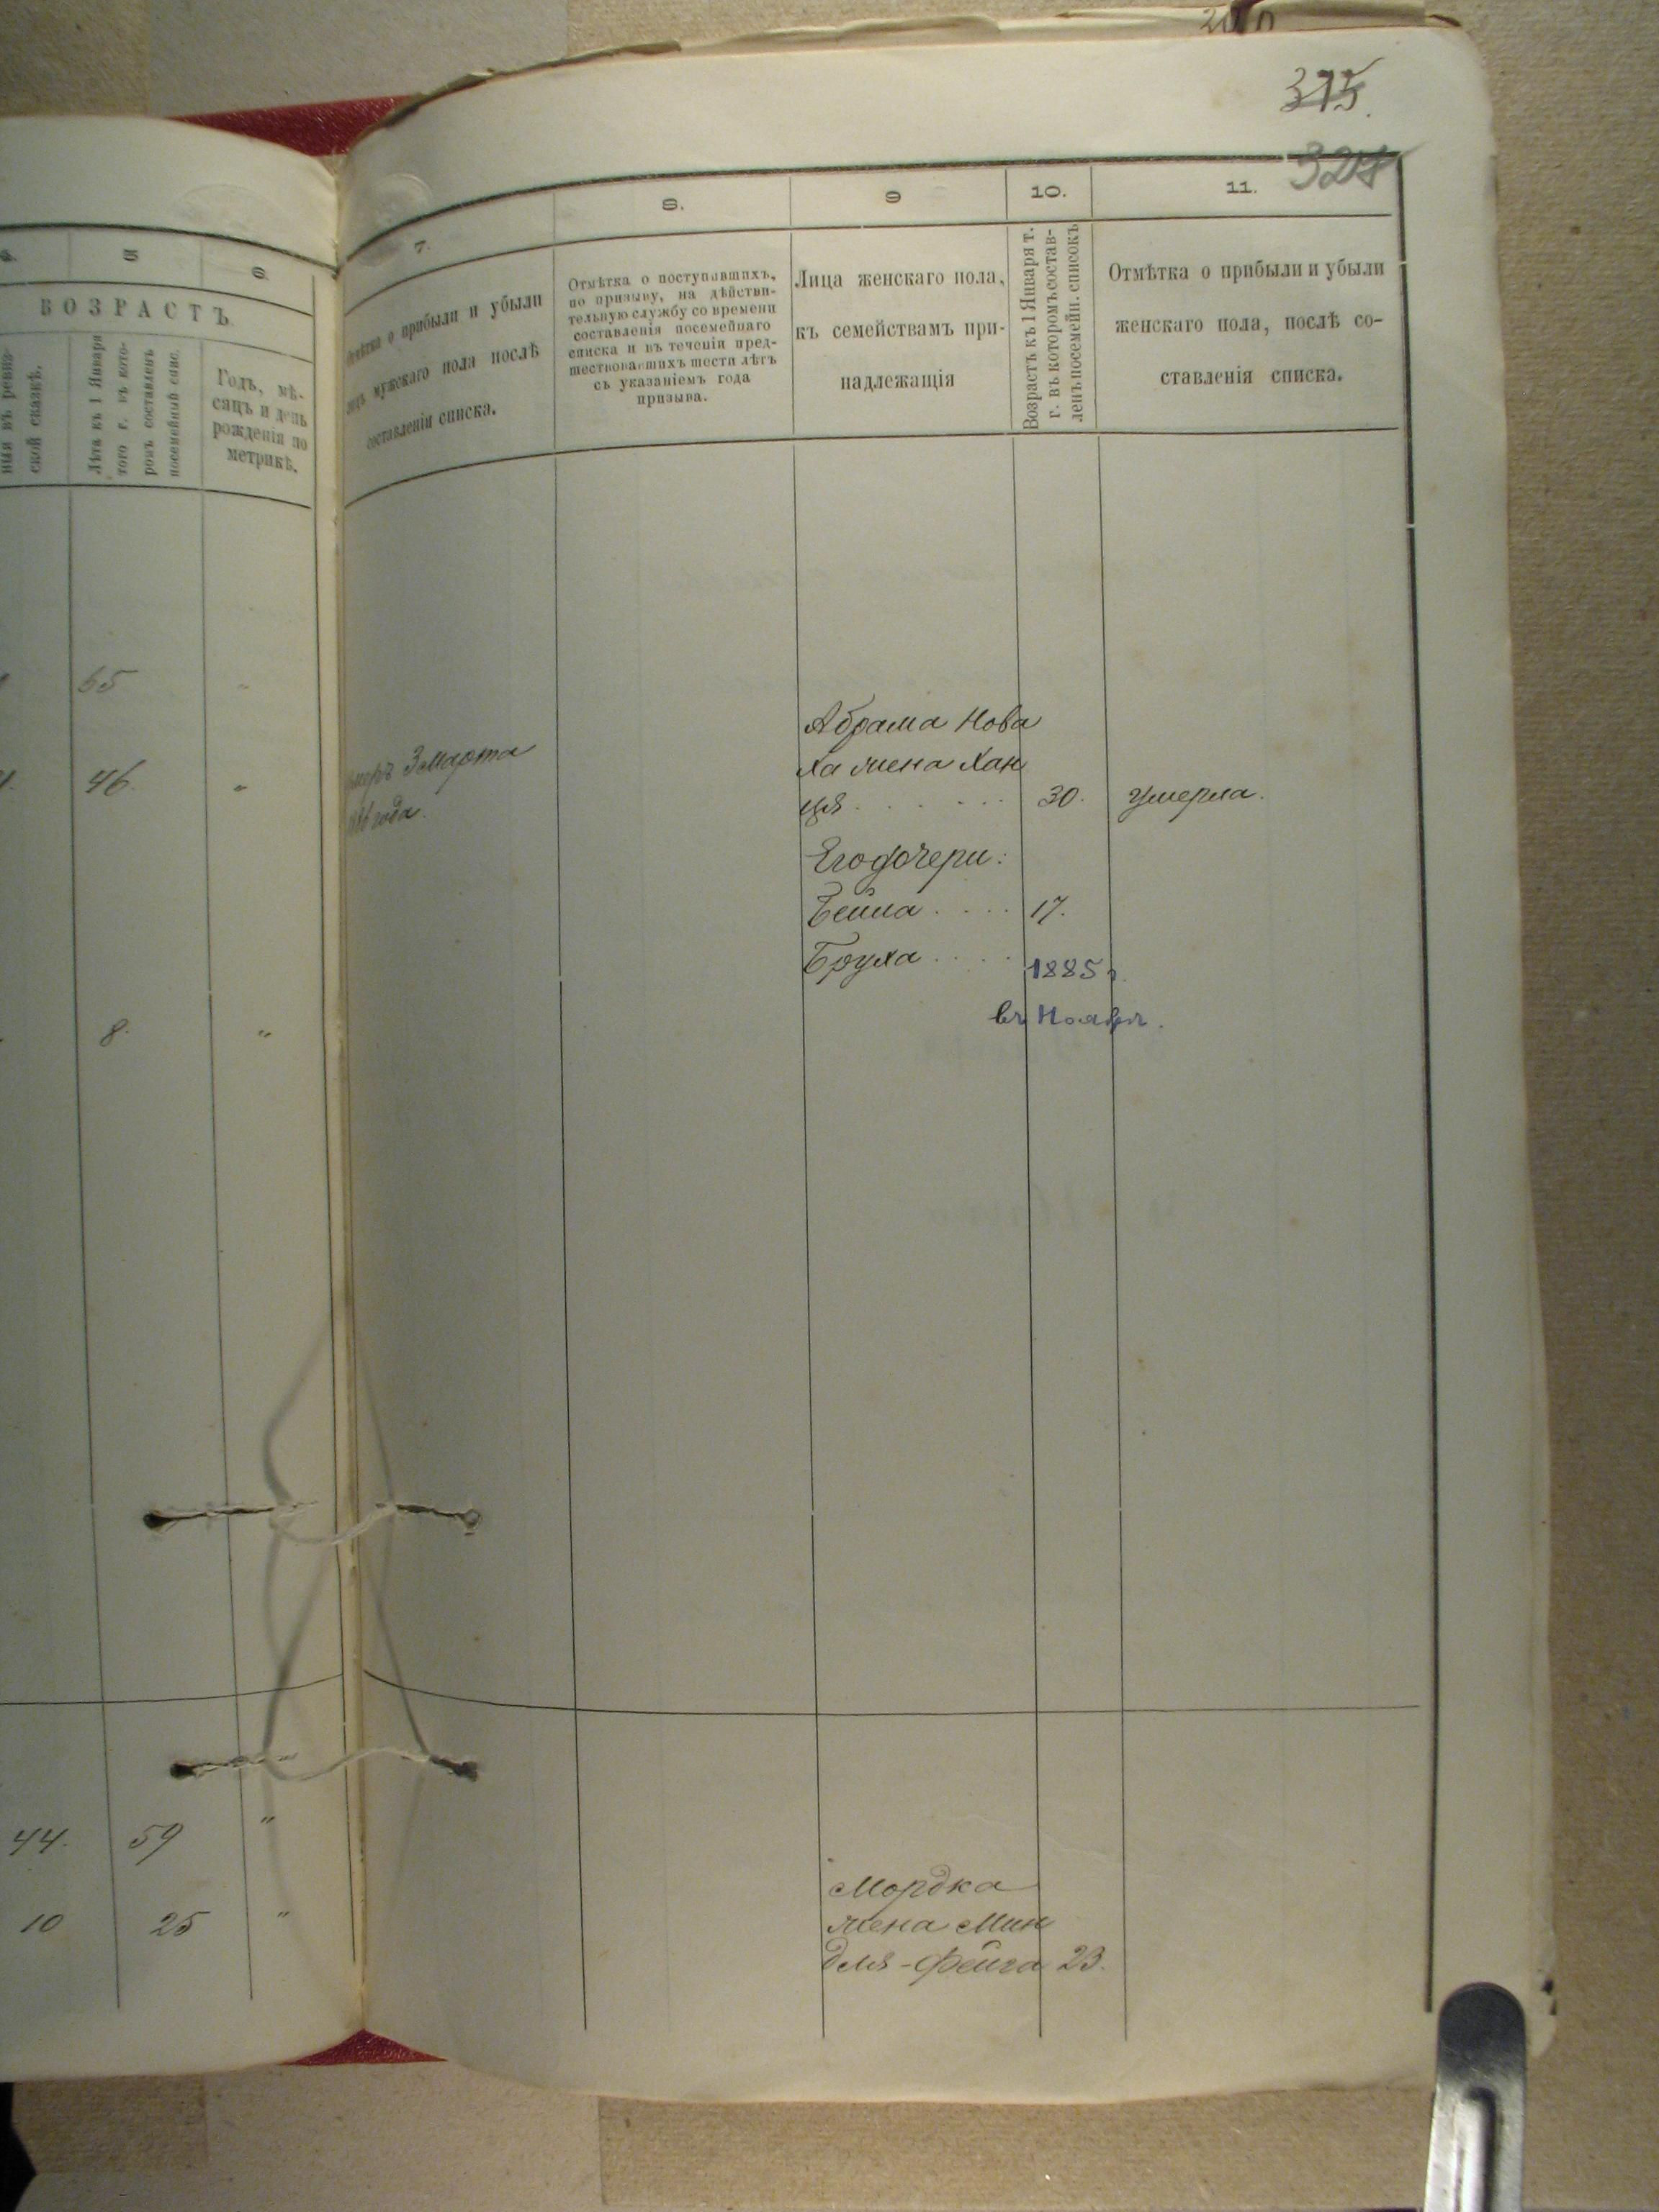 375.
328
4.
5
6.
ВОЗРАСТЪ
ныя въ ревиз-
ской сказкѣ.
Лѣта къ 1 Января
того г. въ кото-
ромъ составленъ
посемейный спис.
Годъ, мѣ-
сяцъ и день
рожденія по
метрикѣ.
7.
о прибыли и убыли
мужскаго пола послѣ
составленія списка.
8.
Отмѣтка о поступавшихъ,
по призыву, на дѣйстви-
тельную службу со времени
составленія посемейнаго
списка и въ теченіи пред-
шествовавшихъ шести лѣтъ
съ указаніемъ года
призыва.
9
Лица женскаго пола,
къ семействамъ при-
надлежащія
10.
Возрастъ къ 1 Января т.
г. въ которомъ состав-
ленъ посемейн. списокъ
11.
Отмѣтка о прибыли и убыли
женскаго пола, послѣ со-
ставленія списка.
65 "
46. "
8. "
44. 59 "
10 25 "
3 Марта
года.
Абрама Нова
ха жена Хан
ця . . . . . . 30. умерла.
Его дочери:
Бейла . . . . 17.
Бруха . . . . 1885 г.
въ Ноябрѣ.
Мордка
жена Мин
для-Фейга 23.